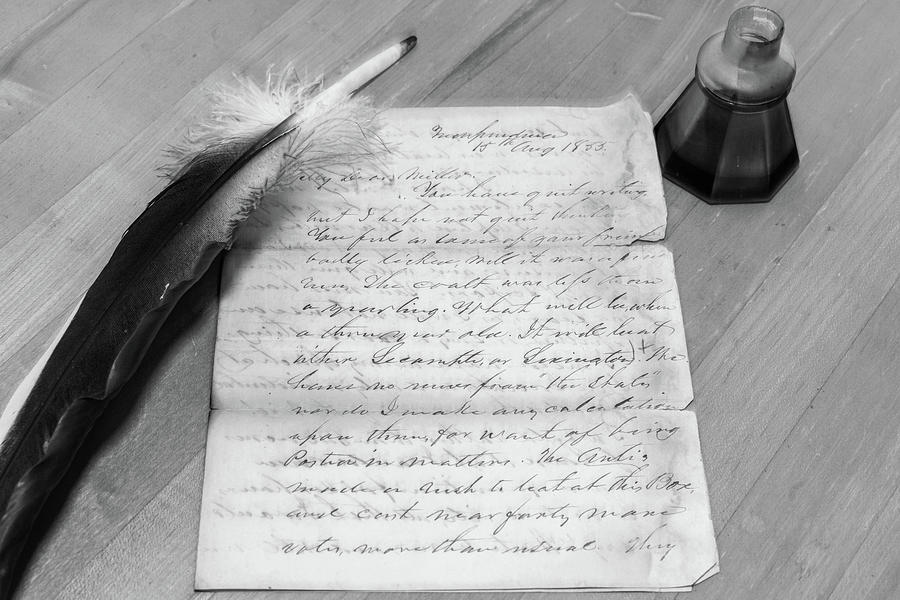 15th Aug 1855.
My Dear Miller.
You have quit writing
but I have not quit thinking
You feel as some of your
badly licked, well it was a fine
run, The coalt was less than
a yearling. What will he, when
a three year old. It will beat
either Lecompte, or Lexington).
have no news from "the States"
nor do I make any calculations
upon them, for want of being
Posted in matters. The Antis
made a rush to beat at this Box,
and cast near forty more
votes, more than usual. They